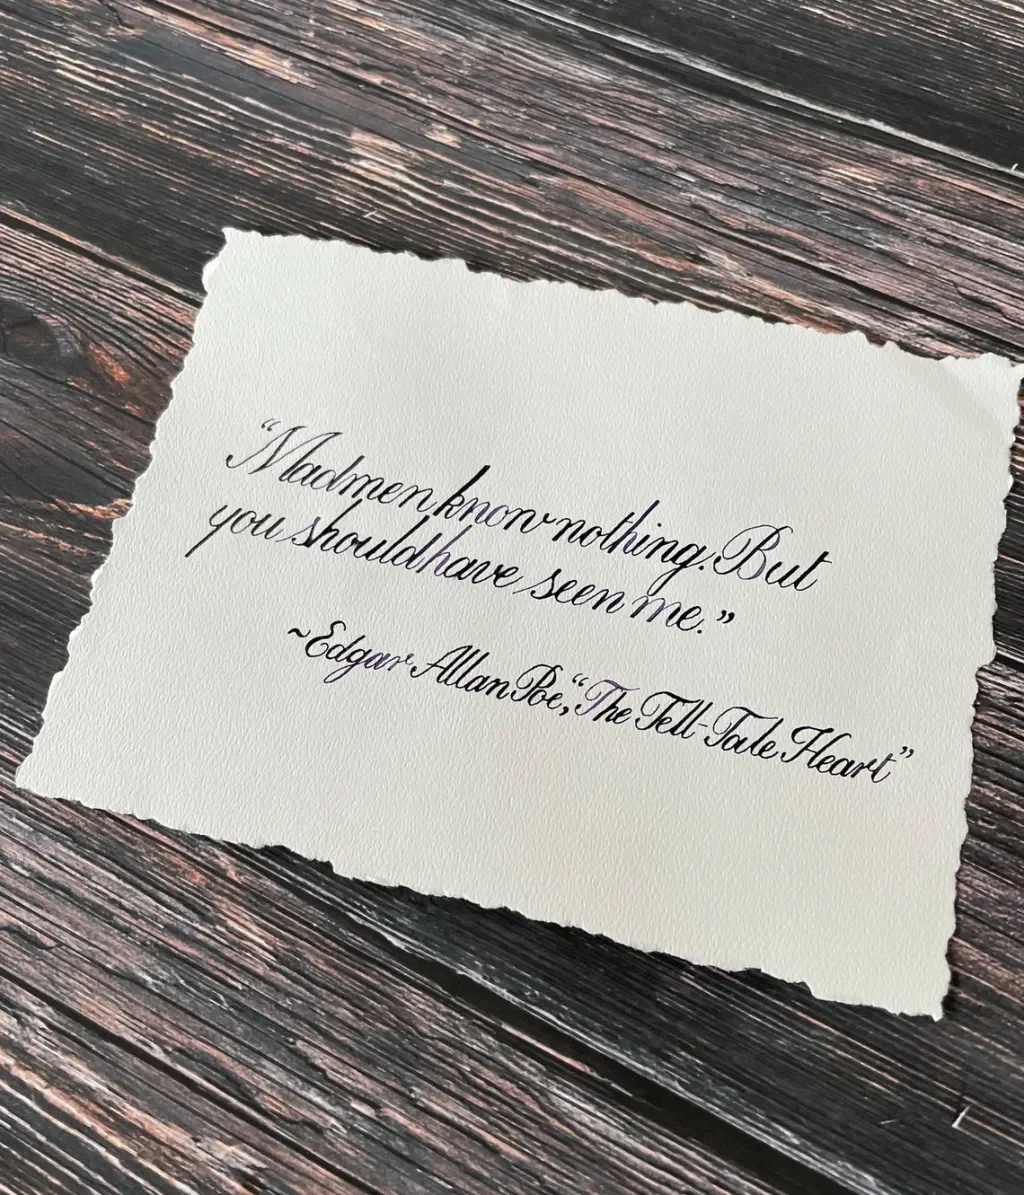 “Madmen know nothing. But
you should have seen me.”
~Edgar Allan Poe, “The Tell-Tale Heart”